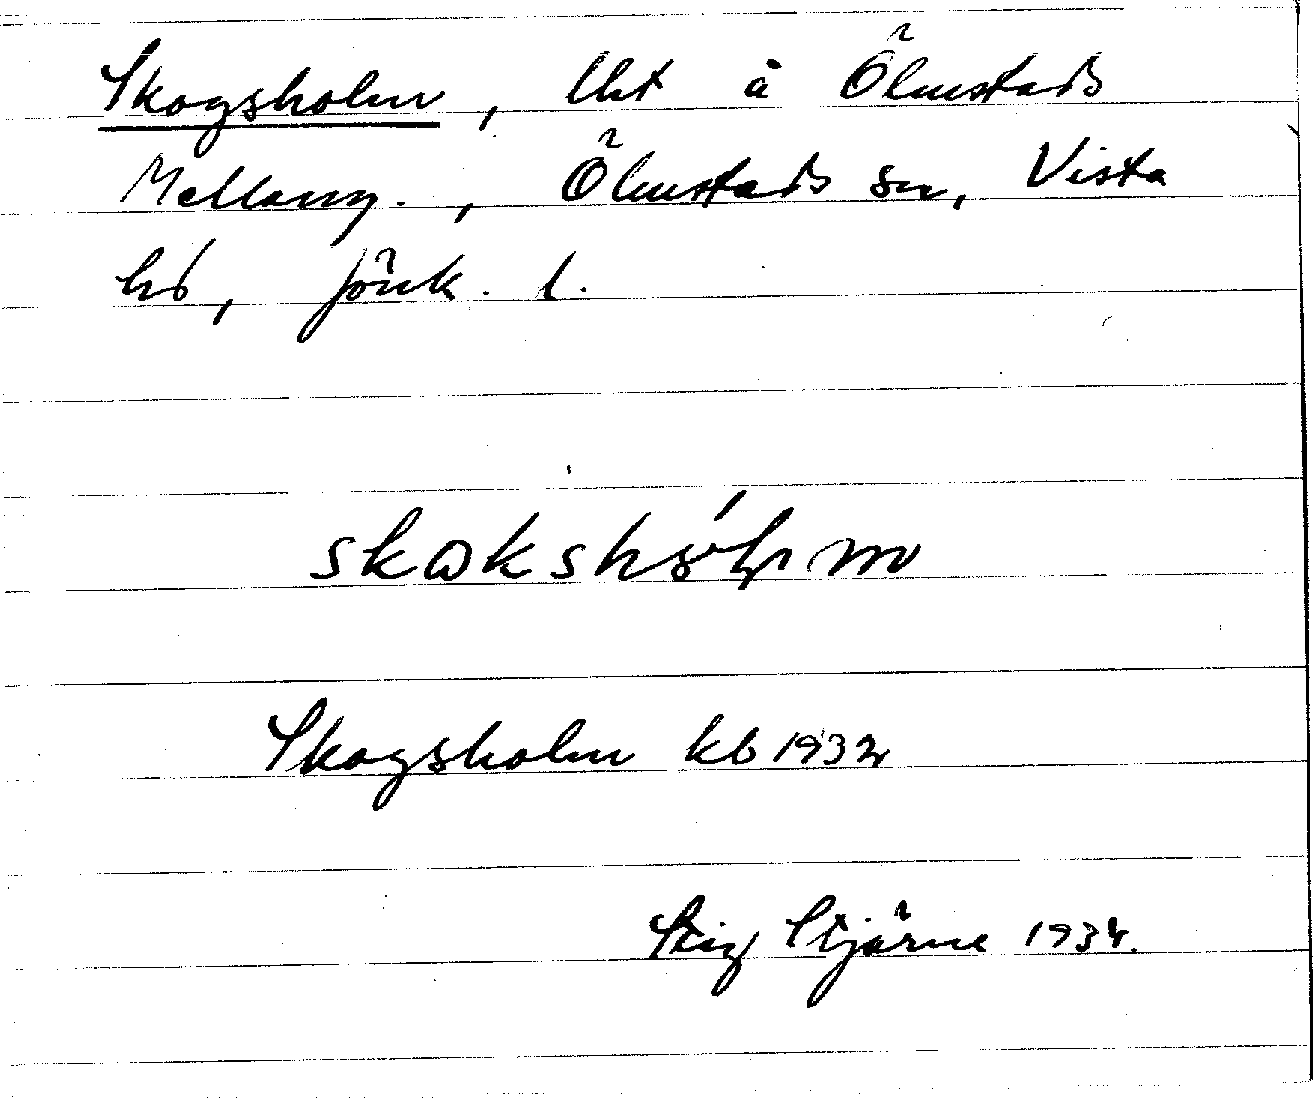 Skogsholm, lht å Ölmstads
Mellang., Ölmstads sn, Vista
hd, Jönk. l.
Skogsholm kb 1932
Stig Stjärne 1934.